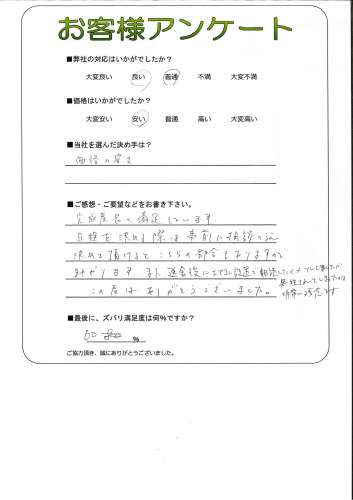 お客様アンケート
■弊社の対応はいかがでしたか？
大変良い 良い 普通 不満 大変不満
■価格はいかがでしたか？
大変安い 安い 普通 高い 大変高い
■当社を選んだ決め手は？
価格の安さ
■ご感想・ご要望などをお書き下さい。
完成度良く満足しています。
日程を決める際は事前に相談のうえ
決めて頂けるとこちらの都合もありますので
助かります。また 退去後にエアコン設置で相談したくメールしましたが
無視されてしまったのは
非常に残念です
この度はありがとうございました。
■最後に、ズバリ満足度は何％ですか？
60 %
ご協力頂き、誠にありがとうございました。